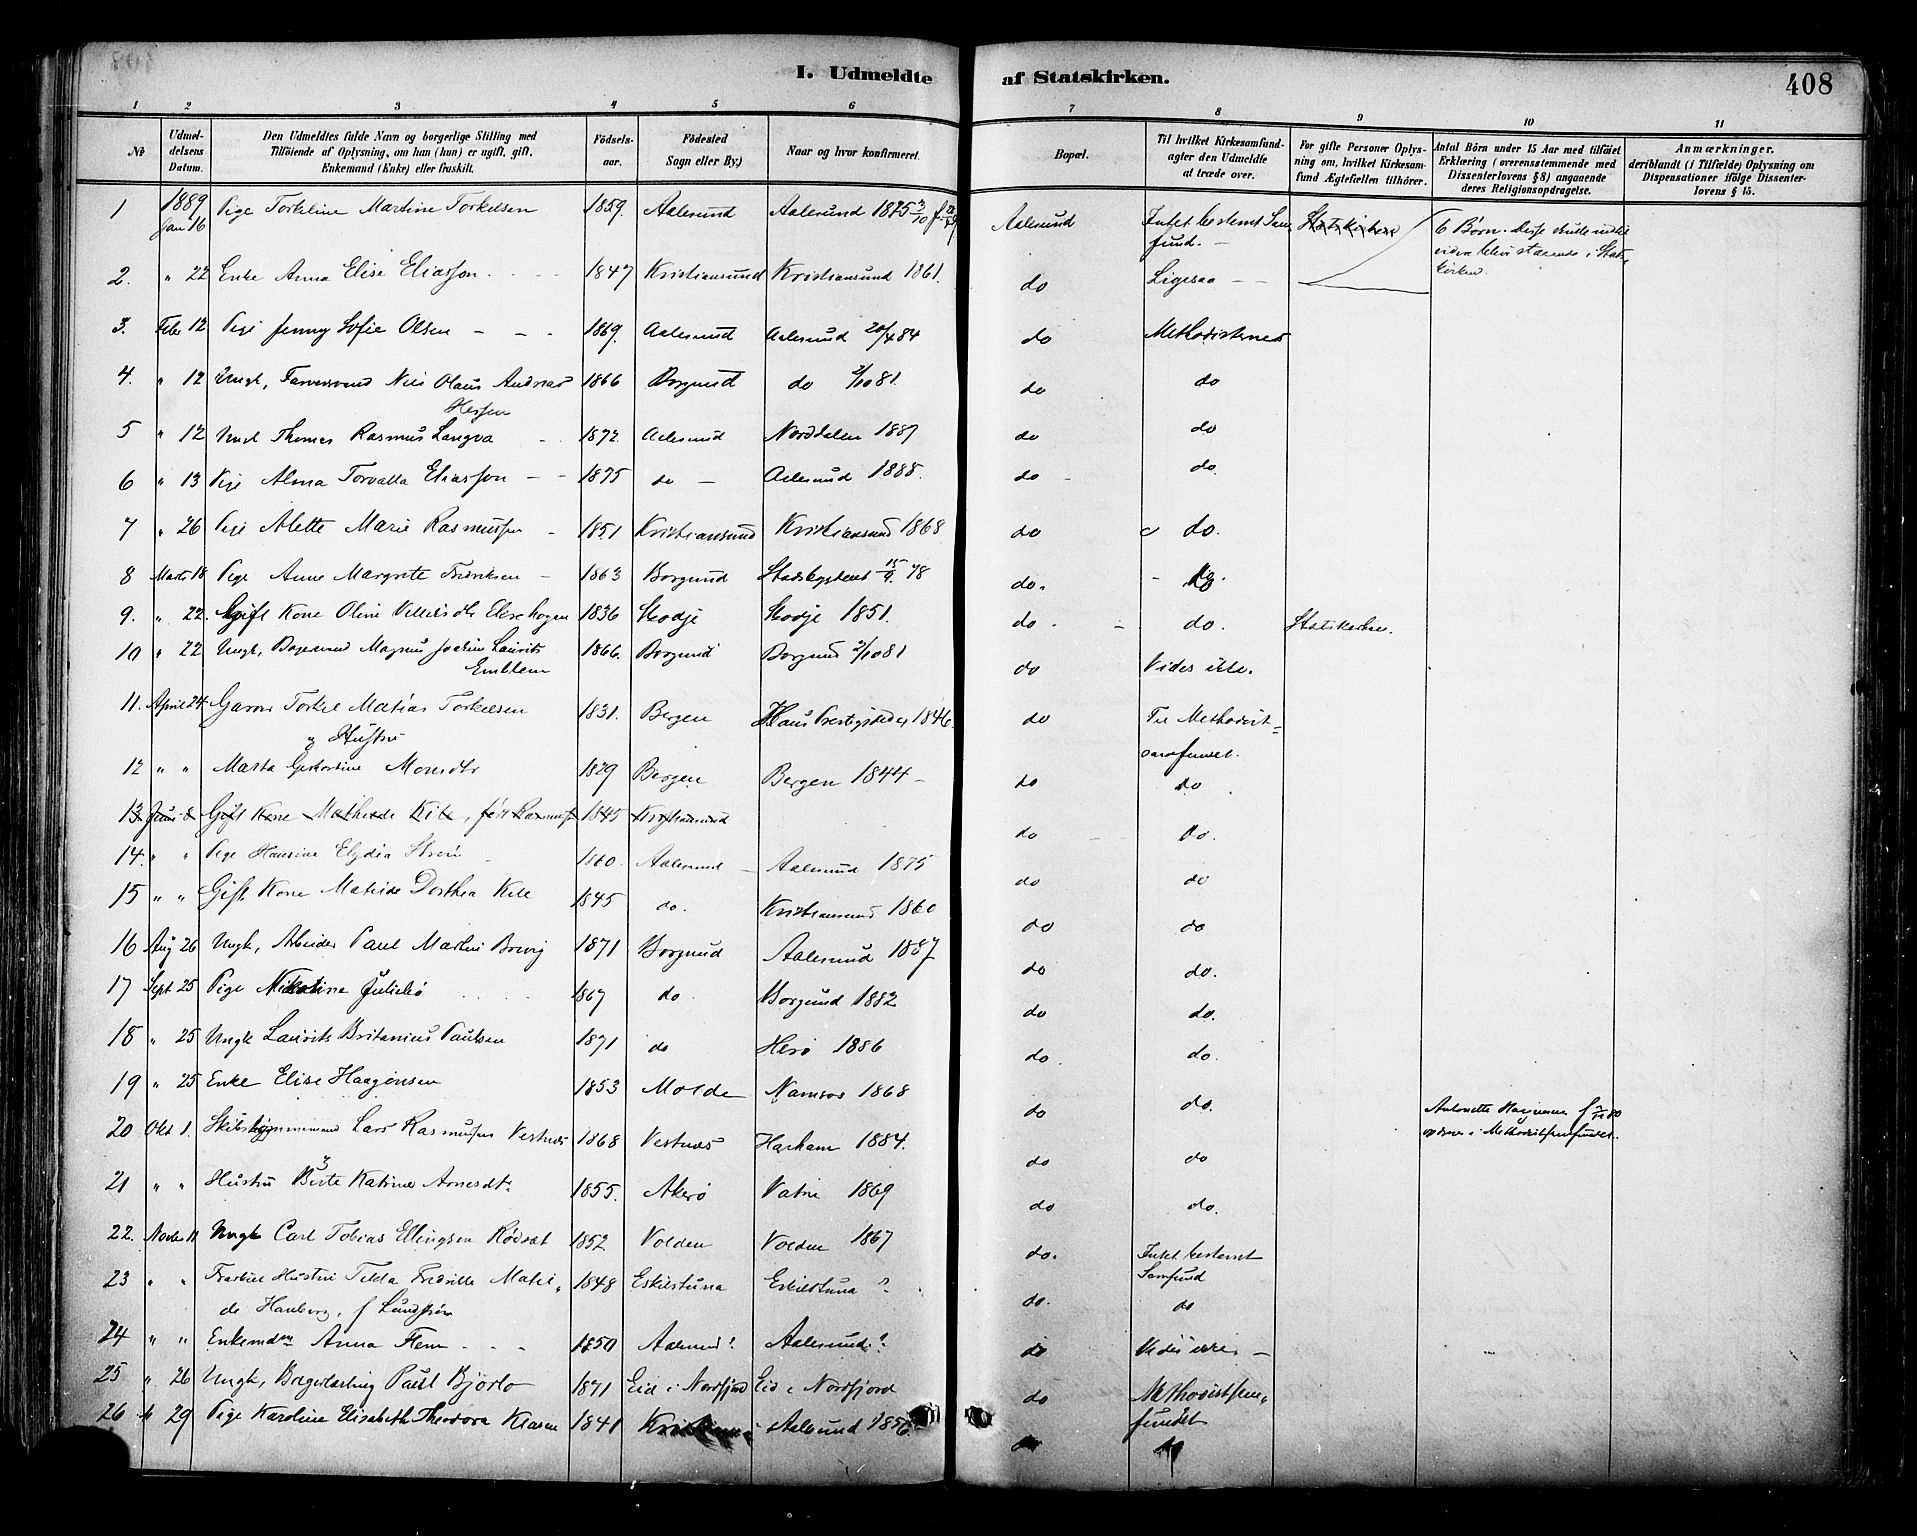 I. Udmeldte af Statskirken.
408
1 2 3 4 5 6 7 8 9 10 11
No
Udmeldelsens Datum.
Den Udmeldtes fulde Navn og borgerlige Stilling med Tilföiende af Oplysning, om han (hun) er ugift, gift, Enkemand (Enke) eller fraskilt.
Födselsaar.
Födested Sogn eller By.)
Naar og hvor konfirmeret.
Bopæl.
Til hvilket Kirkesamfund agter den Udmeldte at træde over.
For gifte Personer Oplysning om, hvilket Kirkesamfund Ægtefællen tilhörer.
Antal Börn under 15 Aar med tilföiet Erklæring (overensstemmende med Dissenterlovens § 8) angaaende deres Religionsopdragelse.
Anmærkninger, deriblandt (i Tilfælde) Oplysning om Dispensationer ifölge Dissenterlovens § 15.
1 1889 Jan 16 Pige Torkeline Martine Torkelsen 1859. Aalesund Aalesund 1875 Aalesund Intet bestemt Samfund. Statskirken 6 Børn.
2. " 22 Enke Anna Elise Eliassen 1847 Kristiansund Kristiansund 1861. do Ligesaa
3. Febr 12 Pige Jenny Sofie Olsen 1869. Aalesund Aalesund 20/4 84 do Methodisternes
4. " 12 Ungk, Nils Olaus Andreas Hessen 1866 Borgund do 2/10 81. do do
5 " 12 Thomas Rasmus Langva 1872. Aalesund Norddalen 1887 do do
6 " 13 Pige Alma Torvalla Eliassen 1875 do Aalesund 1888. do do.
7 " 26 Pige Alette Marie Rasmussen 1851 Kristiansund Kristiansund 1868 do do.
8 Marts 18 Pige Anne Margrete Fredriksen 1863 Borgund 15/9 78 do. do.
9. " 22. Gift Kone Oline 1836 Skodje Skodje 1851. do do. Statskirken.
10 " 22 Ungk, Magnus Joakim Laurits Emblem 1866. Borgund Borgund 2/10 81 do Vides ikke.
11. April 24 Garver Torkel Matias Torkelsen 1831. Bergen Haus Prestegjeld 1846. do Til Methodistsamfundet.
" Hustru
12 " " Marta Monsdtr 1829 Bergen Bergen 1844 do do
13 Juni Gift Kone Mathilde 1845 Kristiansund do do.
14. " " Pige Hansine Elydia Strøm 1860. Aalesund Aalesund 1875 do do
15 " " Gift Kone Matilde Dorthea 1845 do. Kristiansund 1860 do do
16 Aug 26 Ungk, Arbeider Paul Martin Brevig 1871 Borgund Aalesund 1887 do do.
17 Sept 25 Pige Nikoline Juliebø 1867 do Borgund 1882 do do.
18 " 25 Ungk Laurits Britanius Paulsen 1871 do Herø 1886 do do.
19 " 25 Enke Elise Haagensen 1853 Molde Namsos 1868 do do. Antonette
20 Okt 1. Lars Rasmussen Vestnes 1868 Vestnæs Harham 1884. do do
21 " " Hustru Berte Katrine Arnesdtr 1855. Akerø Vatne 1869 do do.
22. Novbr 11 Ungk Carl Tobias Ellingsen Rødset 1852 Volden Volden 1867 do. Intet bestemt Samfund
23 " " Fraskilt Hustru Tekla Fredrikke Matilde Hamberg, f Lundstrøm 1848 Eskilstuna Eskilstuna ? do. do
24 " " Anna Flem 1850 Aalesund? Aalesund? do Vides ikke
25 " 26 Ungk, Bagerlærling Paul Bjørlo 1871 Eid i Nordfjord Eid i Nordfjord do Methodistsamfundet
26 " 29 Pige Karoline Elisabeth Theodora Klasen 1841 Aalesund 1856. do do